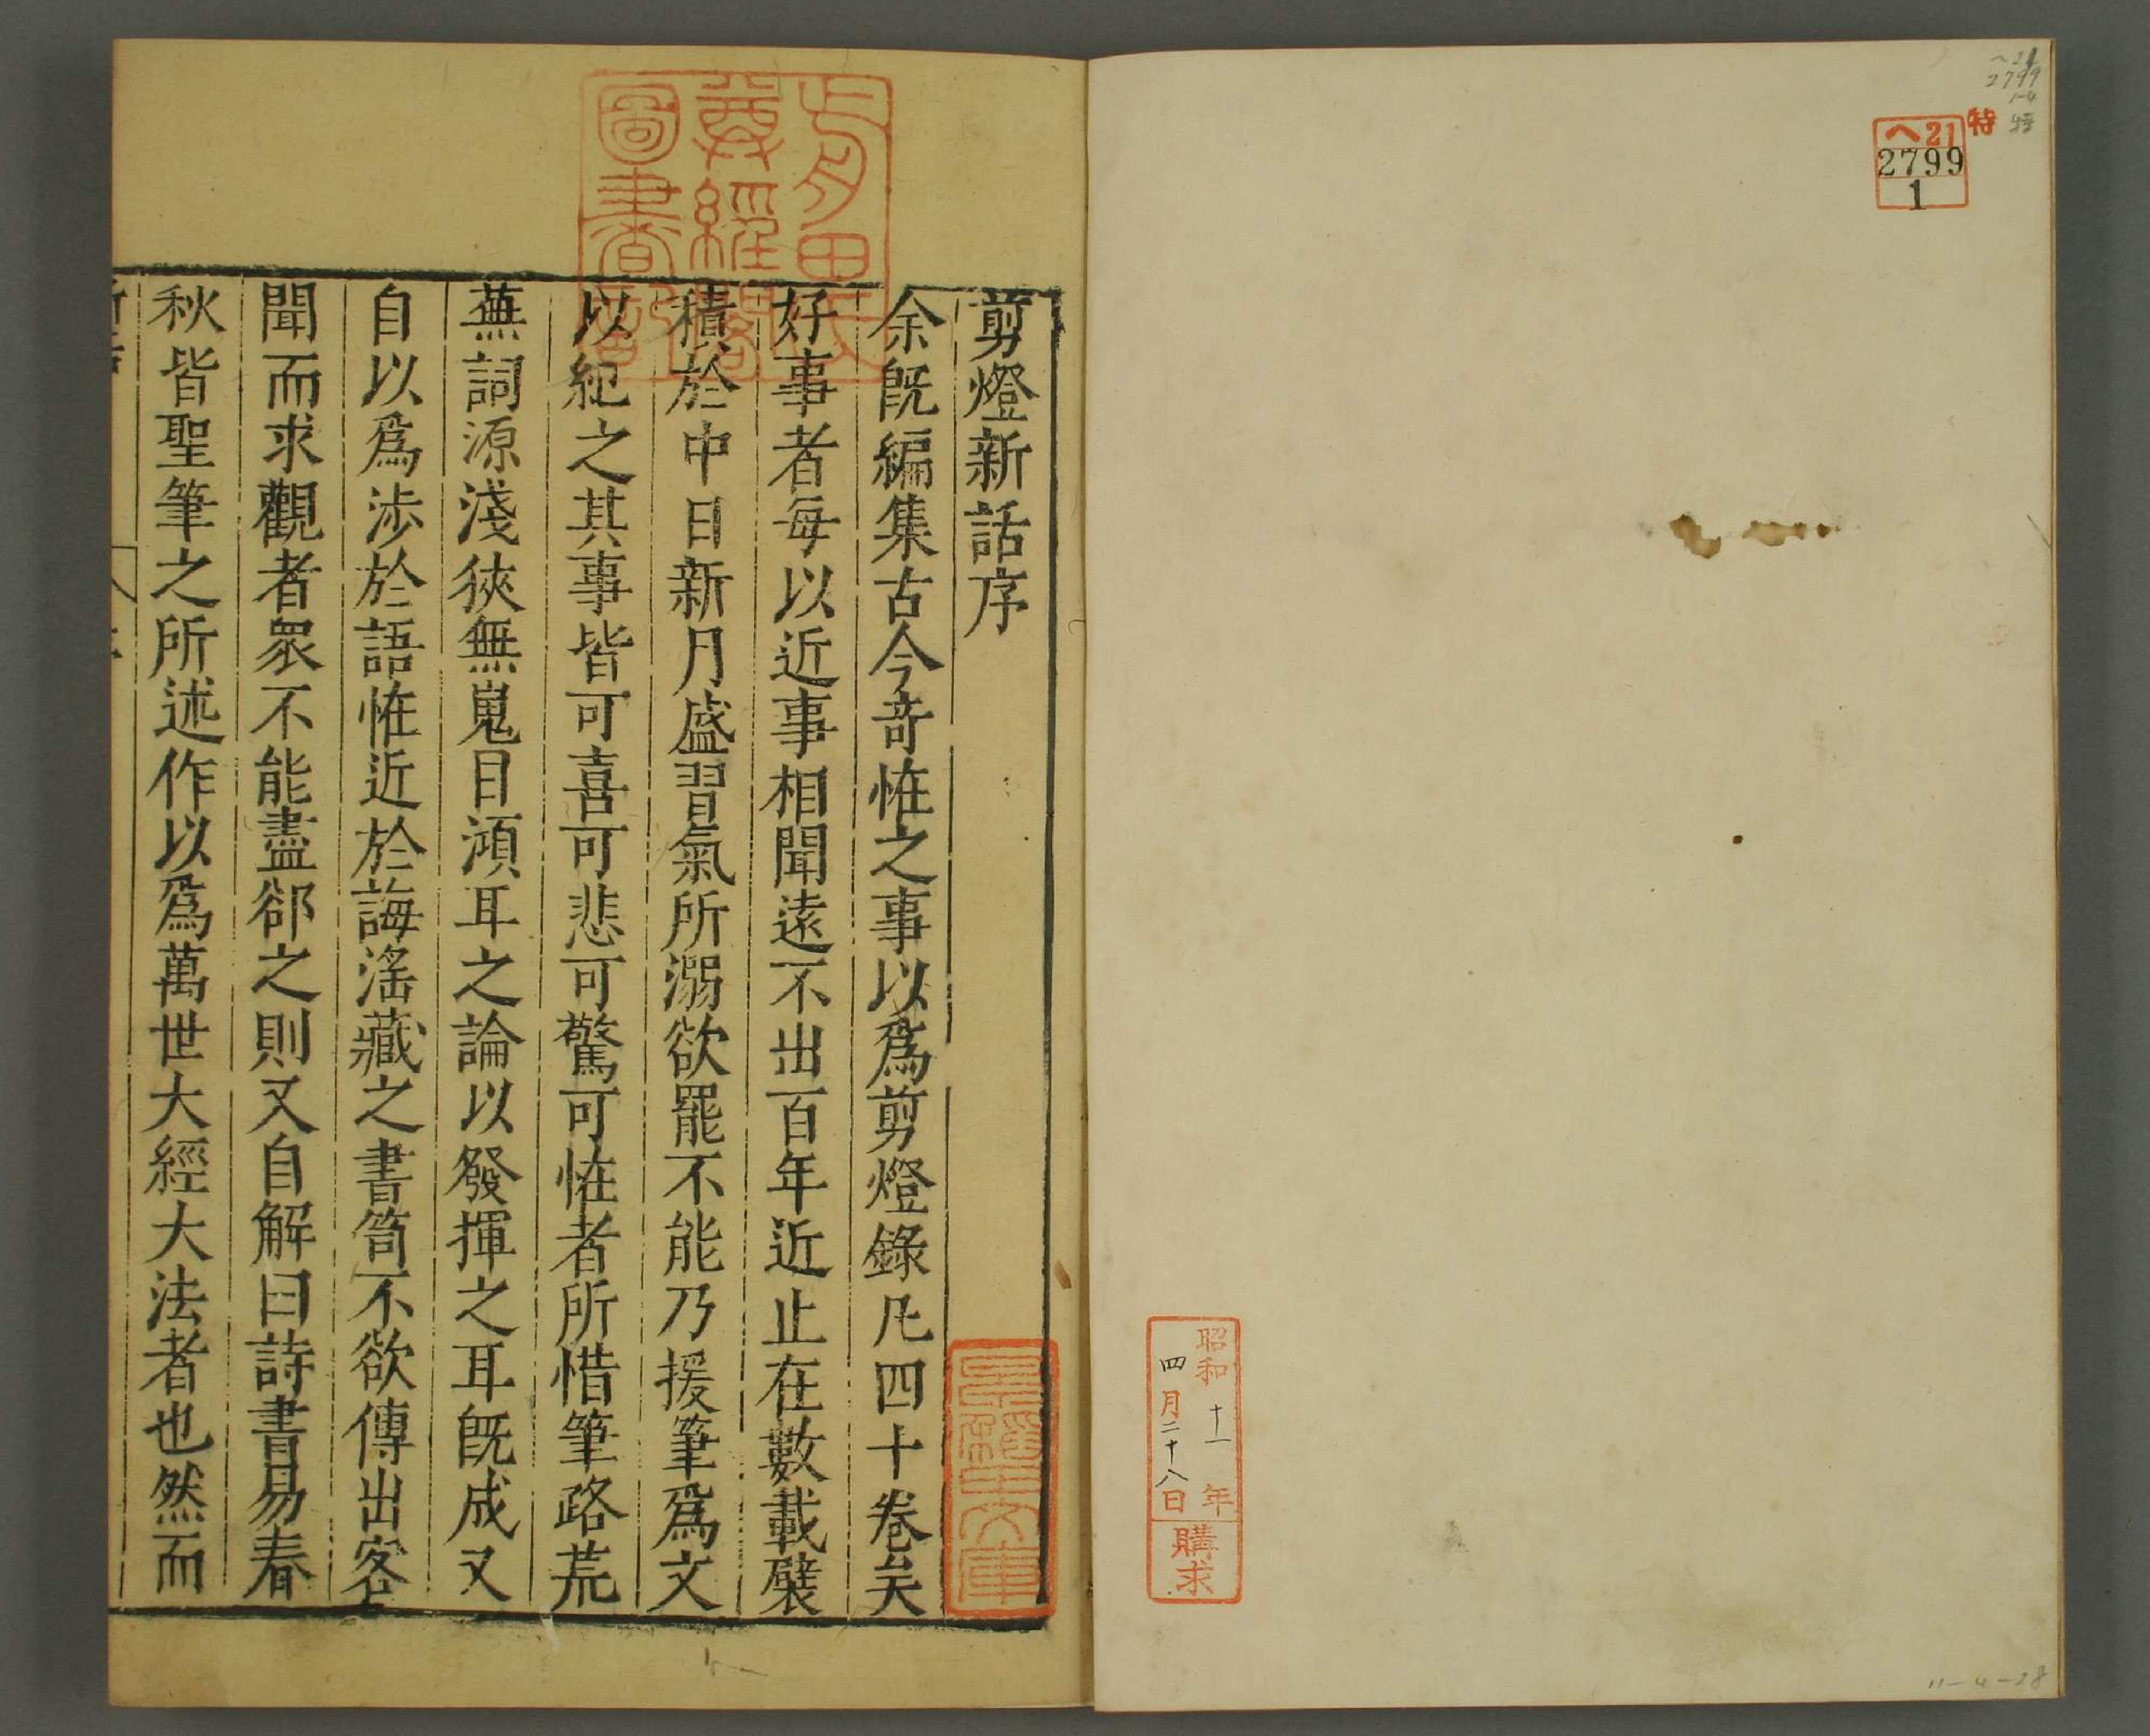 ヘ21
2799
1-4
特
特
ヘ21
2799
1
昭和十一年
四月二十八日
購求
11-4-28
剪燈新話序
余旣編集古今竒恠之事以爲剪燈錄凡四十卷矣
好事者每以近事相聞遠不出百年近止在數載襞
積於中日新月盛習氣所溺欲罷不能乃援筆爲文
以紀之其事皆可喜可悲可驚可恠者所惜筆路荒
蕪詞源淺狹無嵬目澒耳之論以發揮之耳旣成又
自以爲涉於語恠近於誨淫藏之書笥不欲傳出客
聞而求觀者衆不能盡郤之則又自解曰詩書易春
秋皆聖筆之所述作以爲萬世大經大法者也然而
尊經閣
圖書
文庫